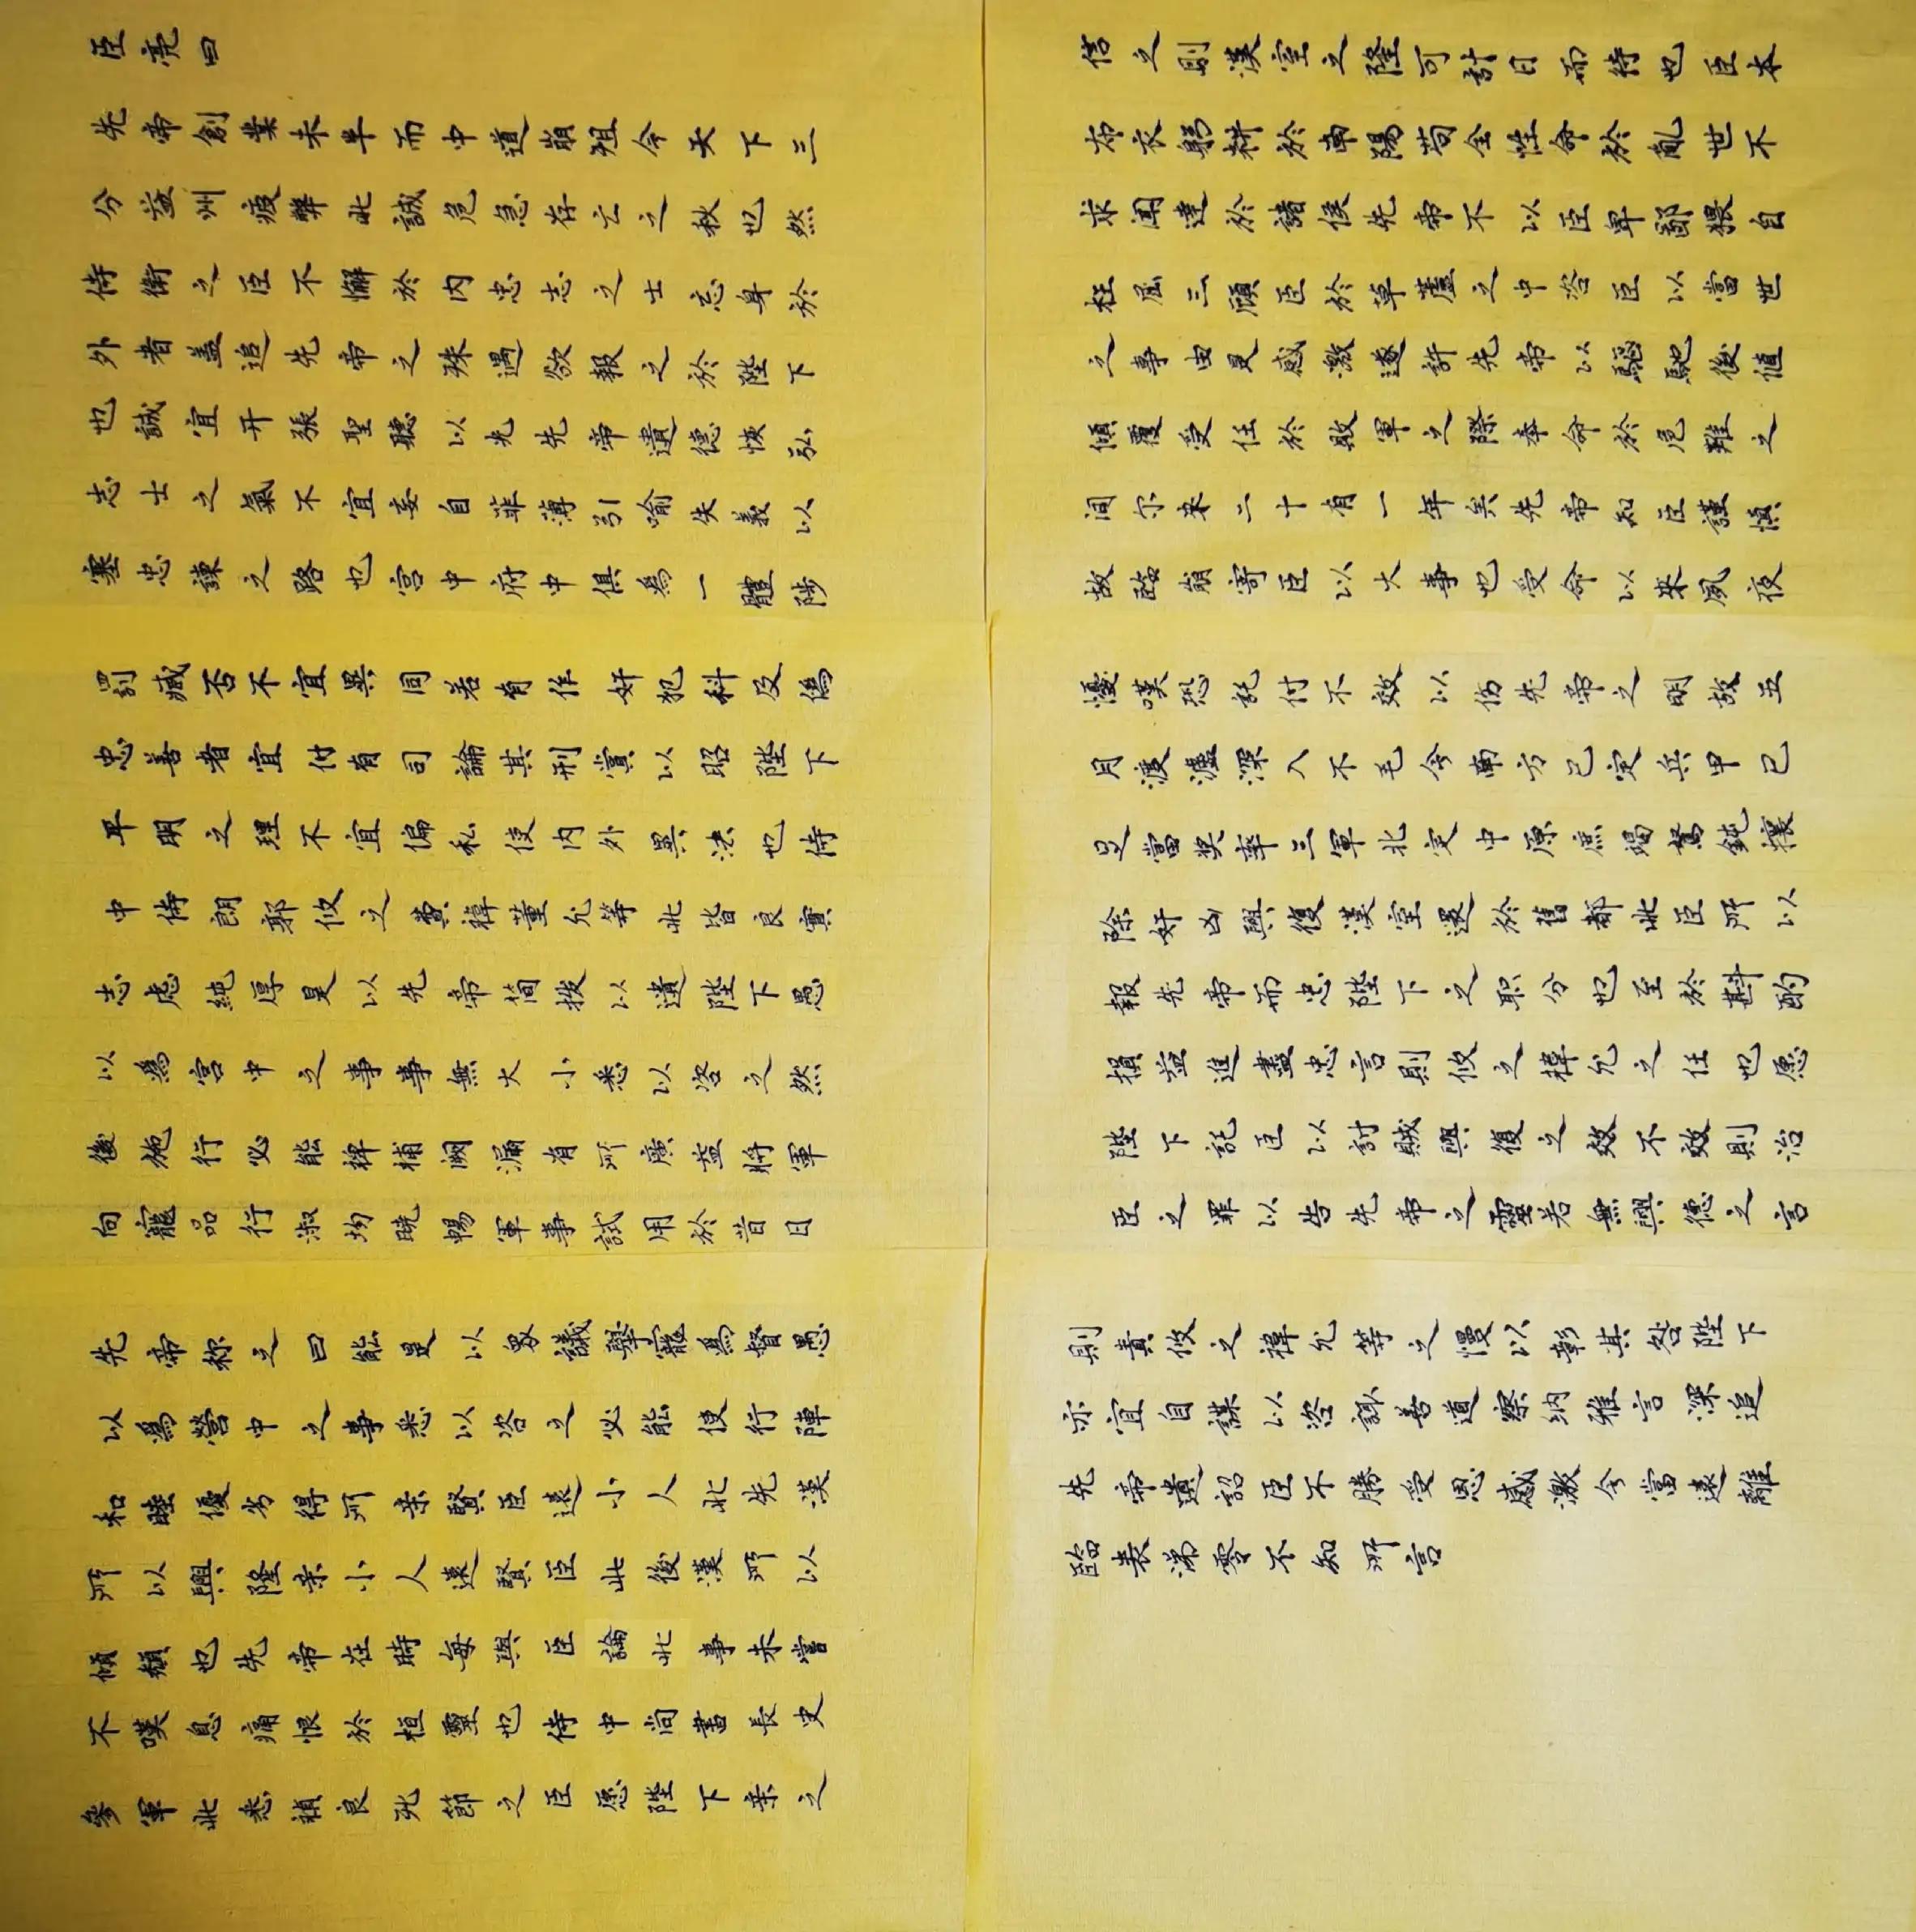 臣亮曰
先帝創業未半而中道崩殂今天下三
分益州疲弊此誠危急存亡之秋也然
侍衛之臣不懈於内忠志之士忘身於
外者盖追先帝之殊遇欲報之於陛下
也誠宜开張聖聽以光先帝遺德恢弘
志士之氣不宜妄自菲薄引喻失義以
塞忠諫之路也宫中府中俱為一體陟
罰臧否不宜異同若有作奸犯科及為
忠善者宜付有司論其刑賞以昭陛下
平明之理不宜偏私使内外異法也侍
中侍郎郭攸之費禕董允等此皆良實
志慮純厚是以先帝簡拔以遺陛下愚
以為宫中之事事無大小悉以咨之然
後施行必能裨補闕漏有所廣益將軍
向寵品行淑均曉暢軍事試用於昔日
先帝称之曰能是以眾議舉寵為督愚
以為營中之事悉以咨之必能使行陣
和睦優劣得所亲賢臣遠小人此先漢
所以興隆亲小人遠賢臣此後漢所以
傾頹也先帝在時每與臣論此事未嘗
不嘆息痛恨於桓靈也侍中尚書長史
參軍此悉禎良死節之臣愿陛下亲之
信之則漢室之隆可計日而待也臣本
布衣躬耕於南陽苟全性命於亂世不
求聞達於諸侯先帝不以臣卑鄙猥自
枉屈三顾臣於草蘆之中咨臣以當世
之事由是感激遂許先帝以驅馳後值
傾覆受任於敗軍之際奉命於危難之
间尔來二十有一年矣先帝知臣謹慎
故臨崩寄臣以大事也受命以來夙夜
憂嘆恐託付不效以伤先帝之明故五
月渡瀘深入不毛今南方已定兵甲已
足當奖率三軍北定中原庶竭駑鈍攘
除奸凶興復漢室還於舊都此臣所以
報先帝而忠陛下之职分也至於斟酌
損益進盡忠言則攸之禕允之任也愿
陛下託臣以討賊興復之效不效則治
臣之罪以告先帝之靈若無興德之言
則責攸之禕允等之慢以彰其咎陛下
亦宜自謀以咨諏善道察納雅言深追
先帝遺詔臣不勝受恩感激今當遠離
臨表涕零不知所言